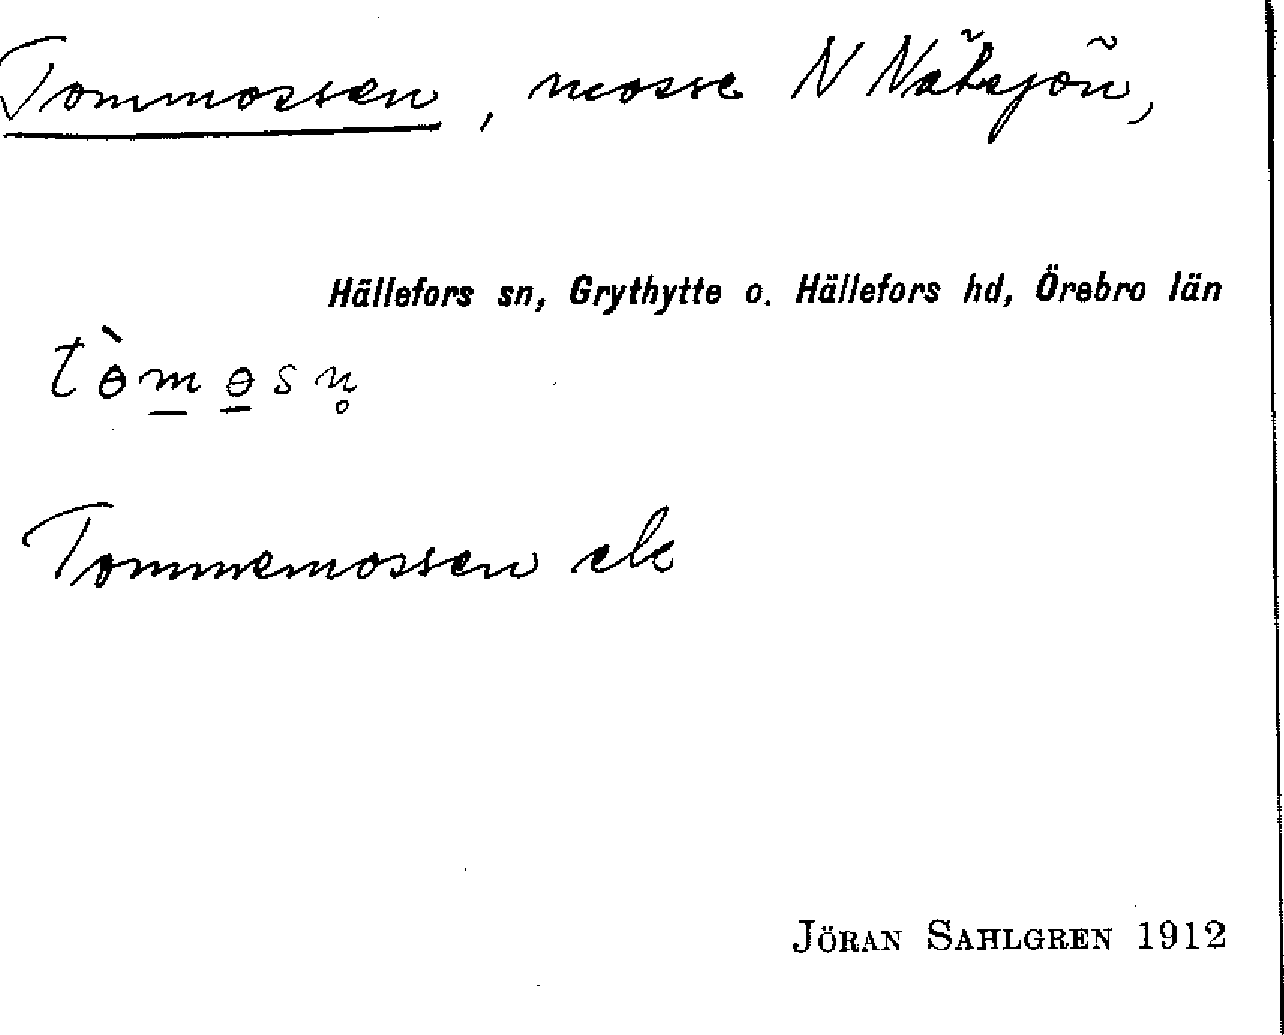 Tommossen, mosse N Nätsjön,
Hällefors sn, Grythytte o. Hällefors hd, Örebro län
tɵ̀m̲ɵ̲sn̥
Tommemossen ek
JÖRAN SAHLGREN 1912